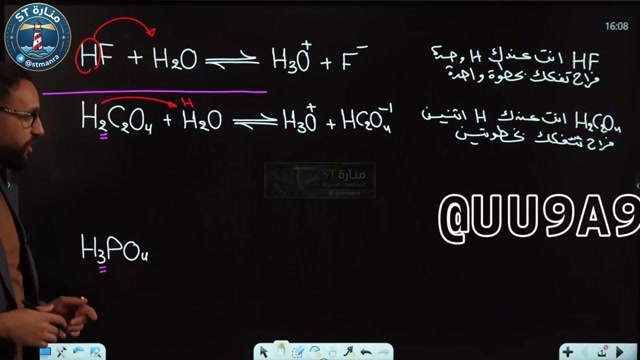 منارة ST
@stmanra
16:08
HF + H₂O ⇌ H₃O⁺ + F⁻
HF انت عندك H وحدة
فراح تتفكك بخطوة واحدة
H
H₂C₂O₄ + H₂O ⇌ H₃O⁺ + HC₂O₄⁻¹
H₂C₂O₄ انت عندك H اثنين
فراح تتفكك بخطوتين
منارة ST
@UU9A9
H₃PO₄